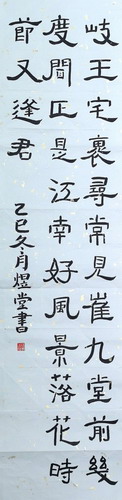 岐王宅裏尋常見崔九堂前幾
度聞正是江南好風景落花時
節又逢君
乙巳冬月煜堂書